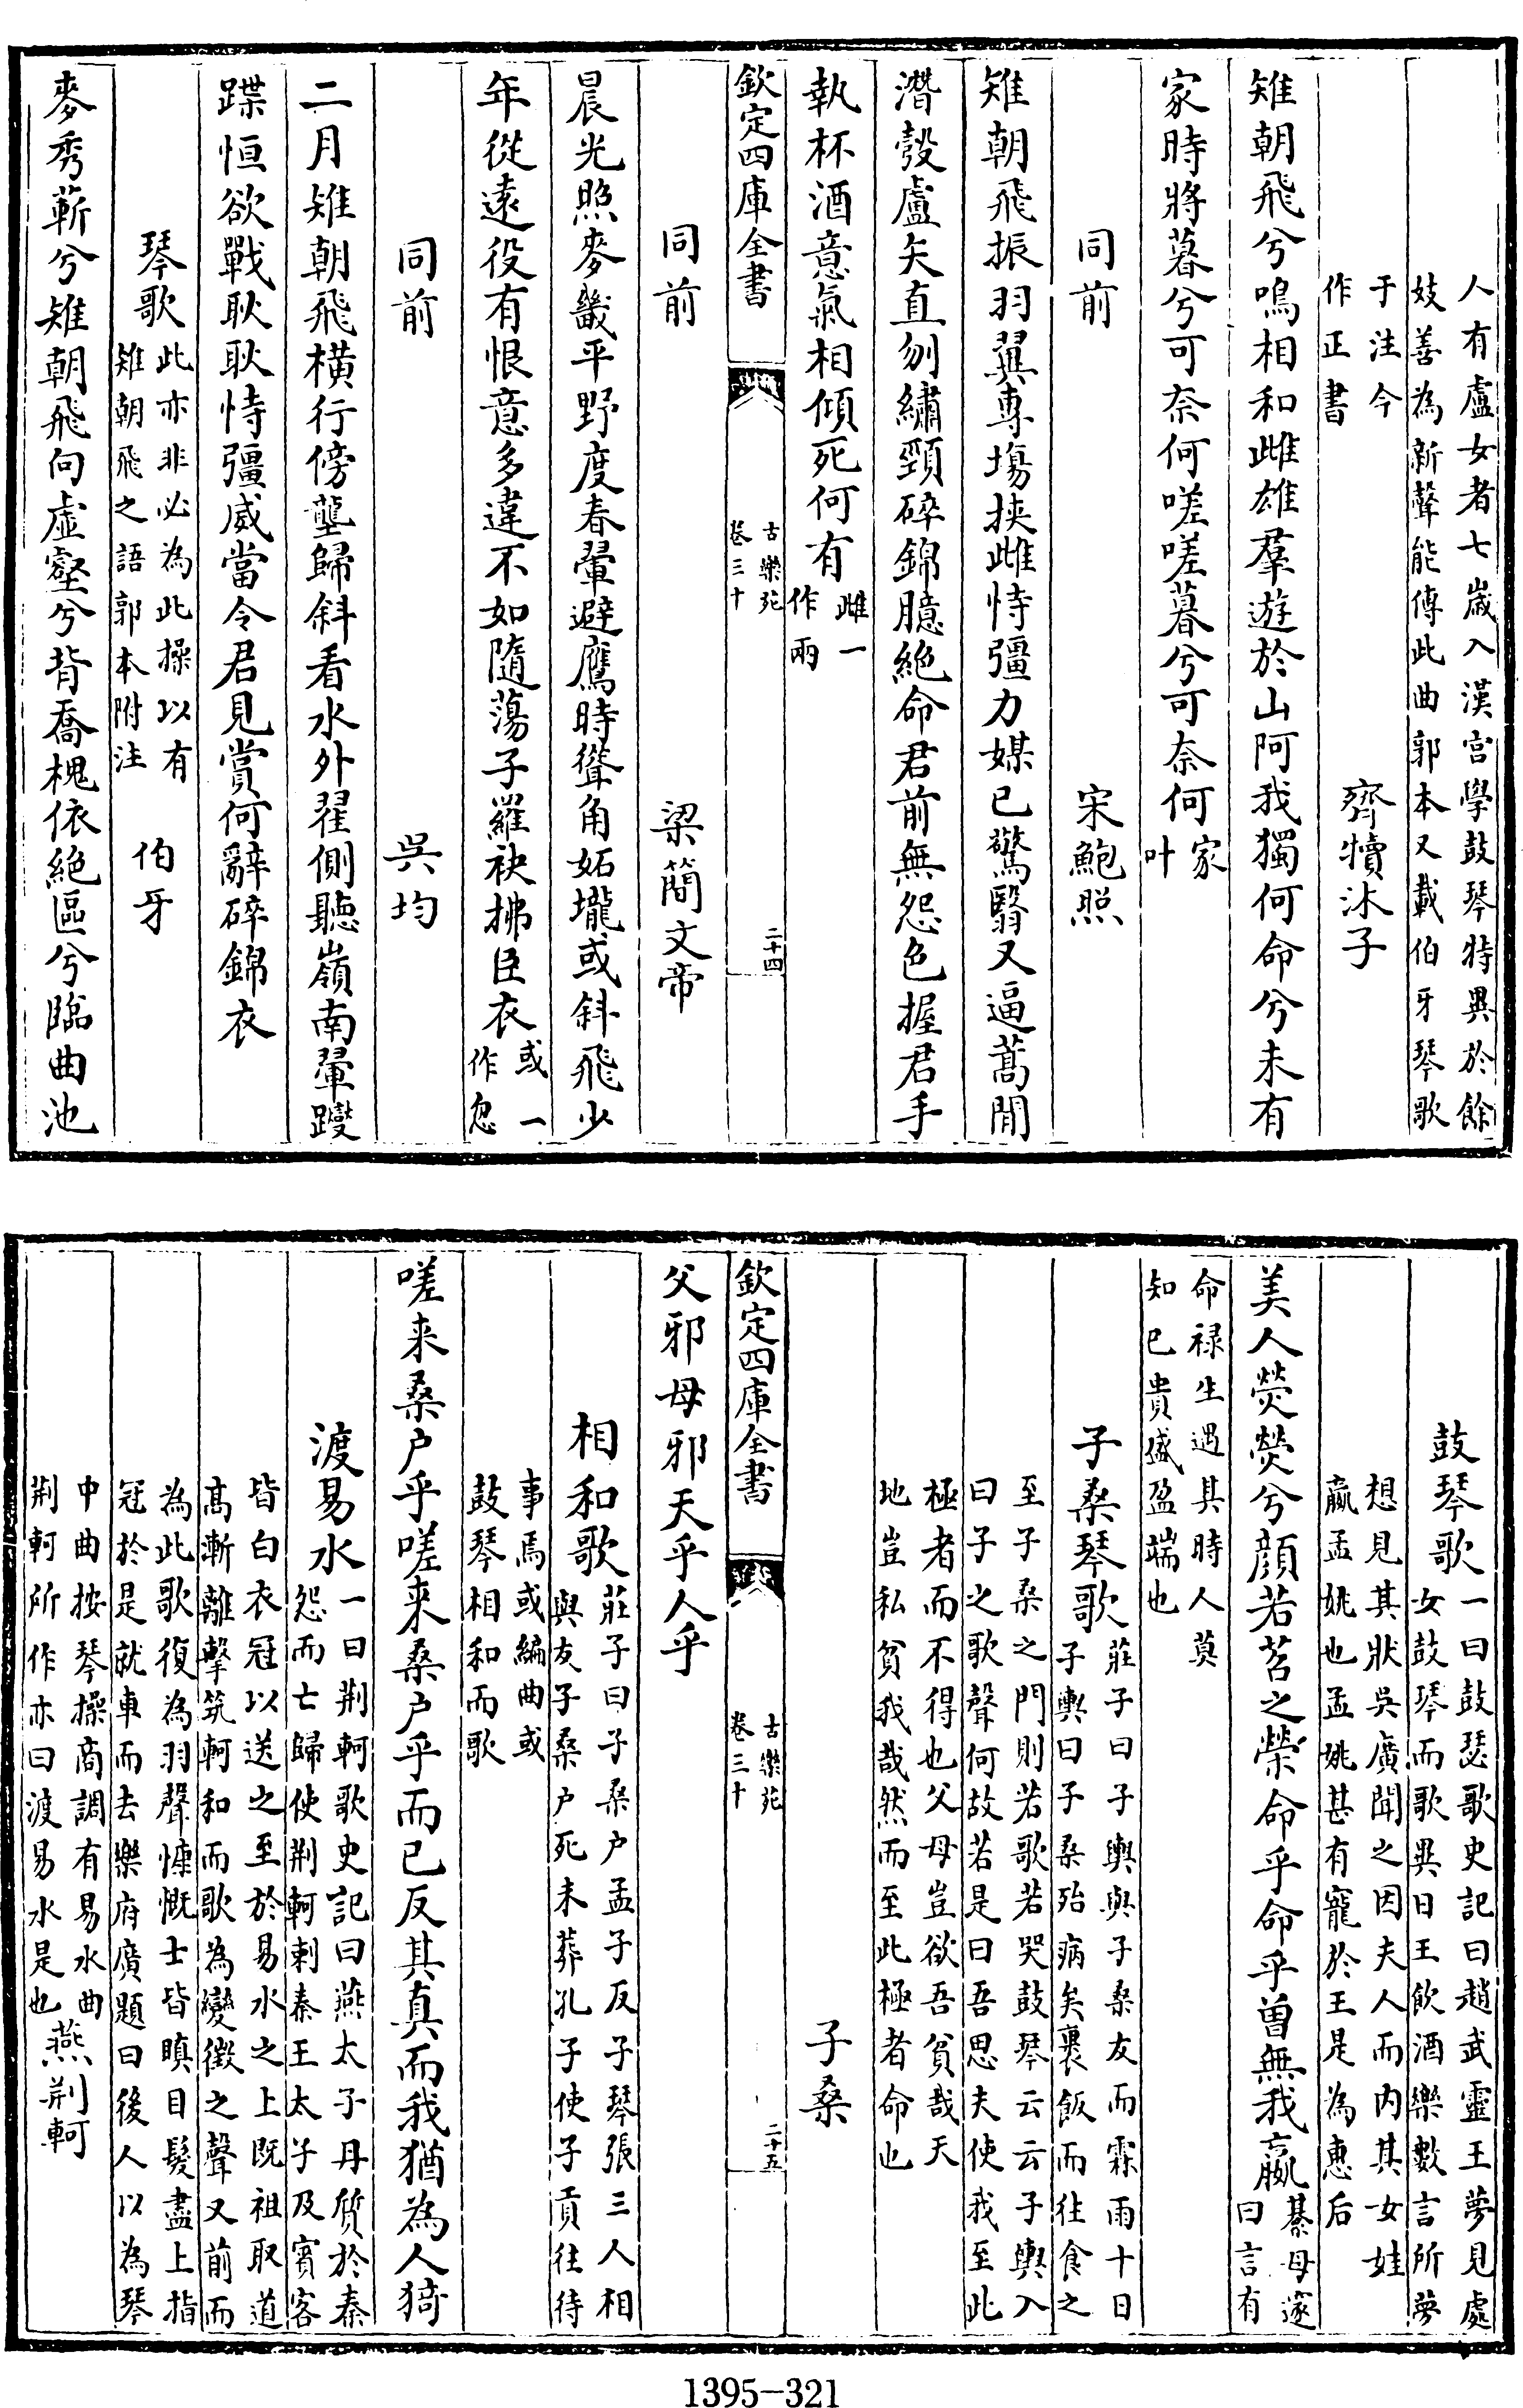 人有盧女者七歲入漢宫學鼓琴特異於餘
妓善為新聲能傳此曲郭本又載伯牙琴歌
于注今
作正書
齊犢沐子
雉朝飛兮嗚相和雌雄羣遊於山阿我獨何命兮未有
家時將暮兮可奈何嗟嗟暮兮可奈何家叶
同前
宋鮑照
雉朝飛振羽翼專塲挟雌恃彊力媒已驚翳又逼蒿間
潛彀盧矢直刎繡頸碎錦臆絶命君前無怨色握君手
執杯酒意氣相傾死何有雌一作兩
欽定四庫全書
古樂苑
卷三十
二十四
同前
梁簡文帝
晨光照麥畿平野度春翬避鷹時聳角妬壠或斜飛少
年從逺役有恨意多違不如隨蕩子羅袂拂臣衣或一作忽
同前
吳均
二月雉朝飛橫行傍壟歸斜看水外翟側聽嶺南翬躞
蹀恒欲戰耿耿恃彊威當令君見賞何辭碎錦衣
琴歌此亦非必為此操以有
雉朝飛之語郭本附注
伯牙
麥秀蔪兮雉朝飛向虛壑兮背喬槐依絶區兮臨曲池
鼓琴歌一曰鼓瑟歌史記曰趙武靈王夢見處
女鼓琴而歌異日王飲酒樂數言所夢
想見其狀吳廣聞之因夫人而内其女娃
嬴孟姚也孟姚甚有寵於王是為惠后
美人熒熒兮顔若苕之榮命乎命乎曽無我嬴綦母邃
曰言有
命禄生遇其時人莫
知己貴盛盈端也
子桑琴歌莊子曰子輿與子桑友而霖雨十日
子輿曰子桑殆病矣裹飯而往食之
至子桑之門則若歌若哭鼓琴云云子輿入
曰子之歌聲何故若是曰吾思夫使我至此
極者而不得也父母豈欲吾貧哉天
地豈私貧我哉然而至此極者命也
子桑
欽定四庫全書
古樂苑
卷三十
二十五
父邪母邪天乎人乎
相和歌莊子曰子桑户孟子反子琴張三人相
與友子桑户死未葬孔子使子貢往待
事焉或編曲或
鼓琴相和而歌
嗟来桑户乎嗟来桑户乎而已反其真而我猶為人猗
渡易水一曰荆軻歌史記曰燕太子丹質於秦
怨而亡歸使荆軻刺秦王太子及賓客
皆白衣冠以送之至於易水之上既祖取道
髙漸離擊筑軻和而歌為變徵之聲又前而
為此歌復為羽聲慷慨士皆瞋目髪盡上指
冠於是就車而去樂府廣題曰後人以為琴
中曲按琴操商調有易水曲
荆軻所作亦曰渡易水是也
燕荆軻
1395-321